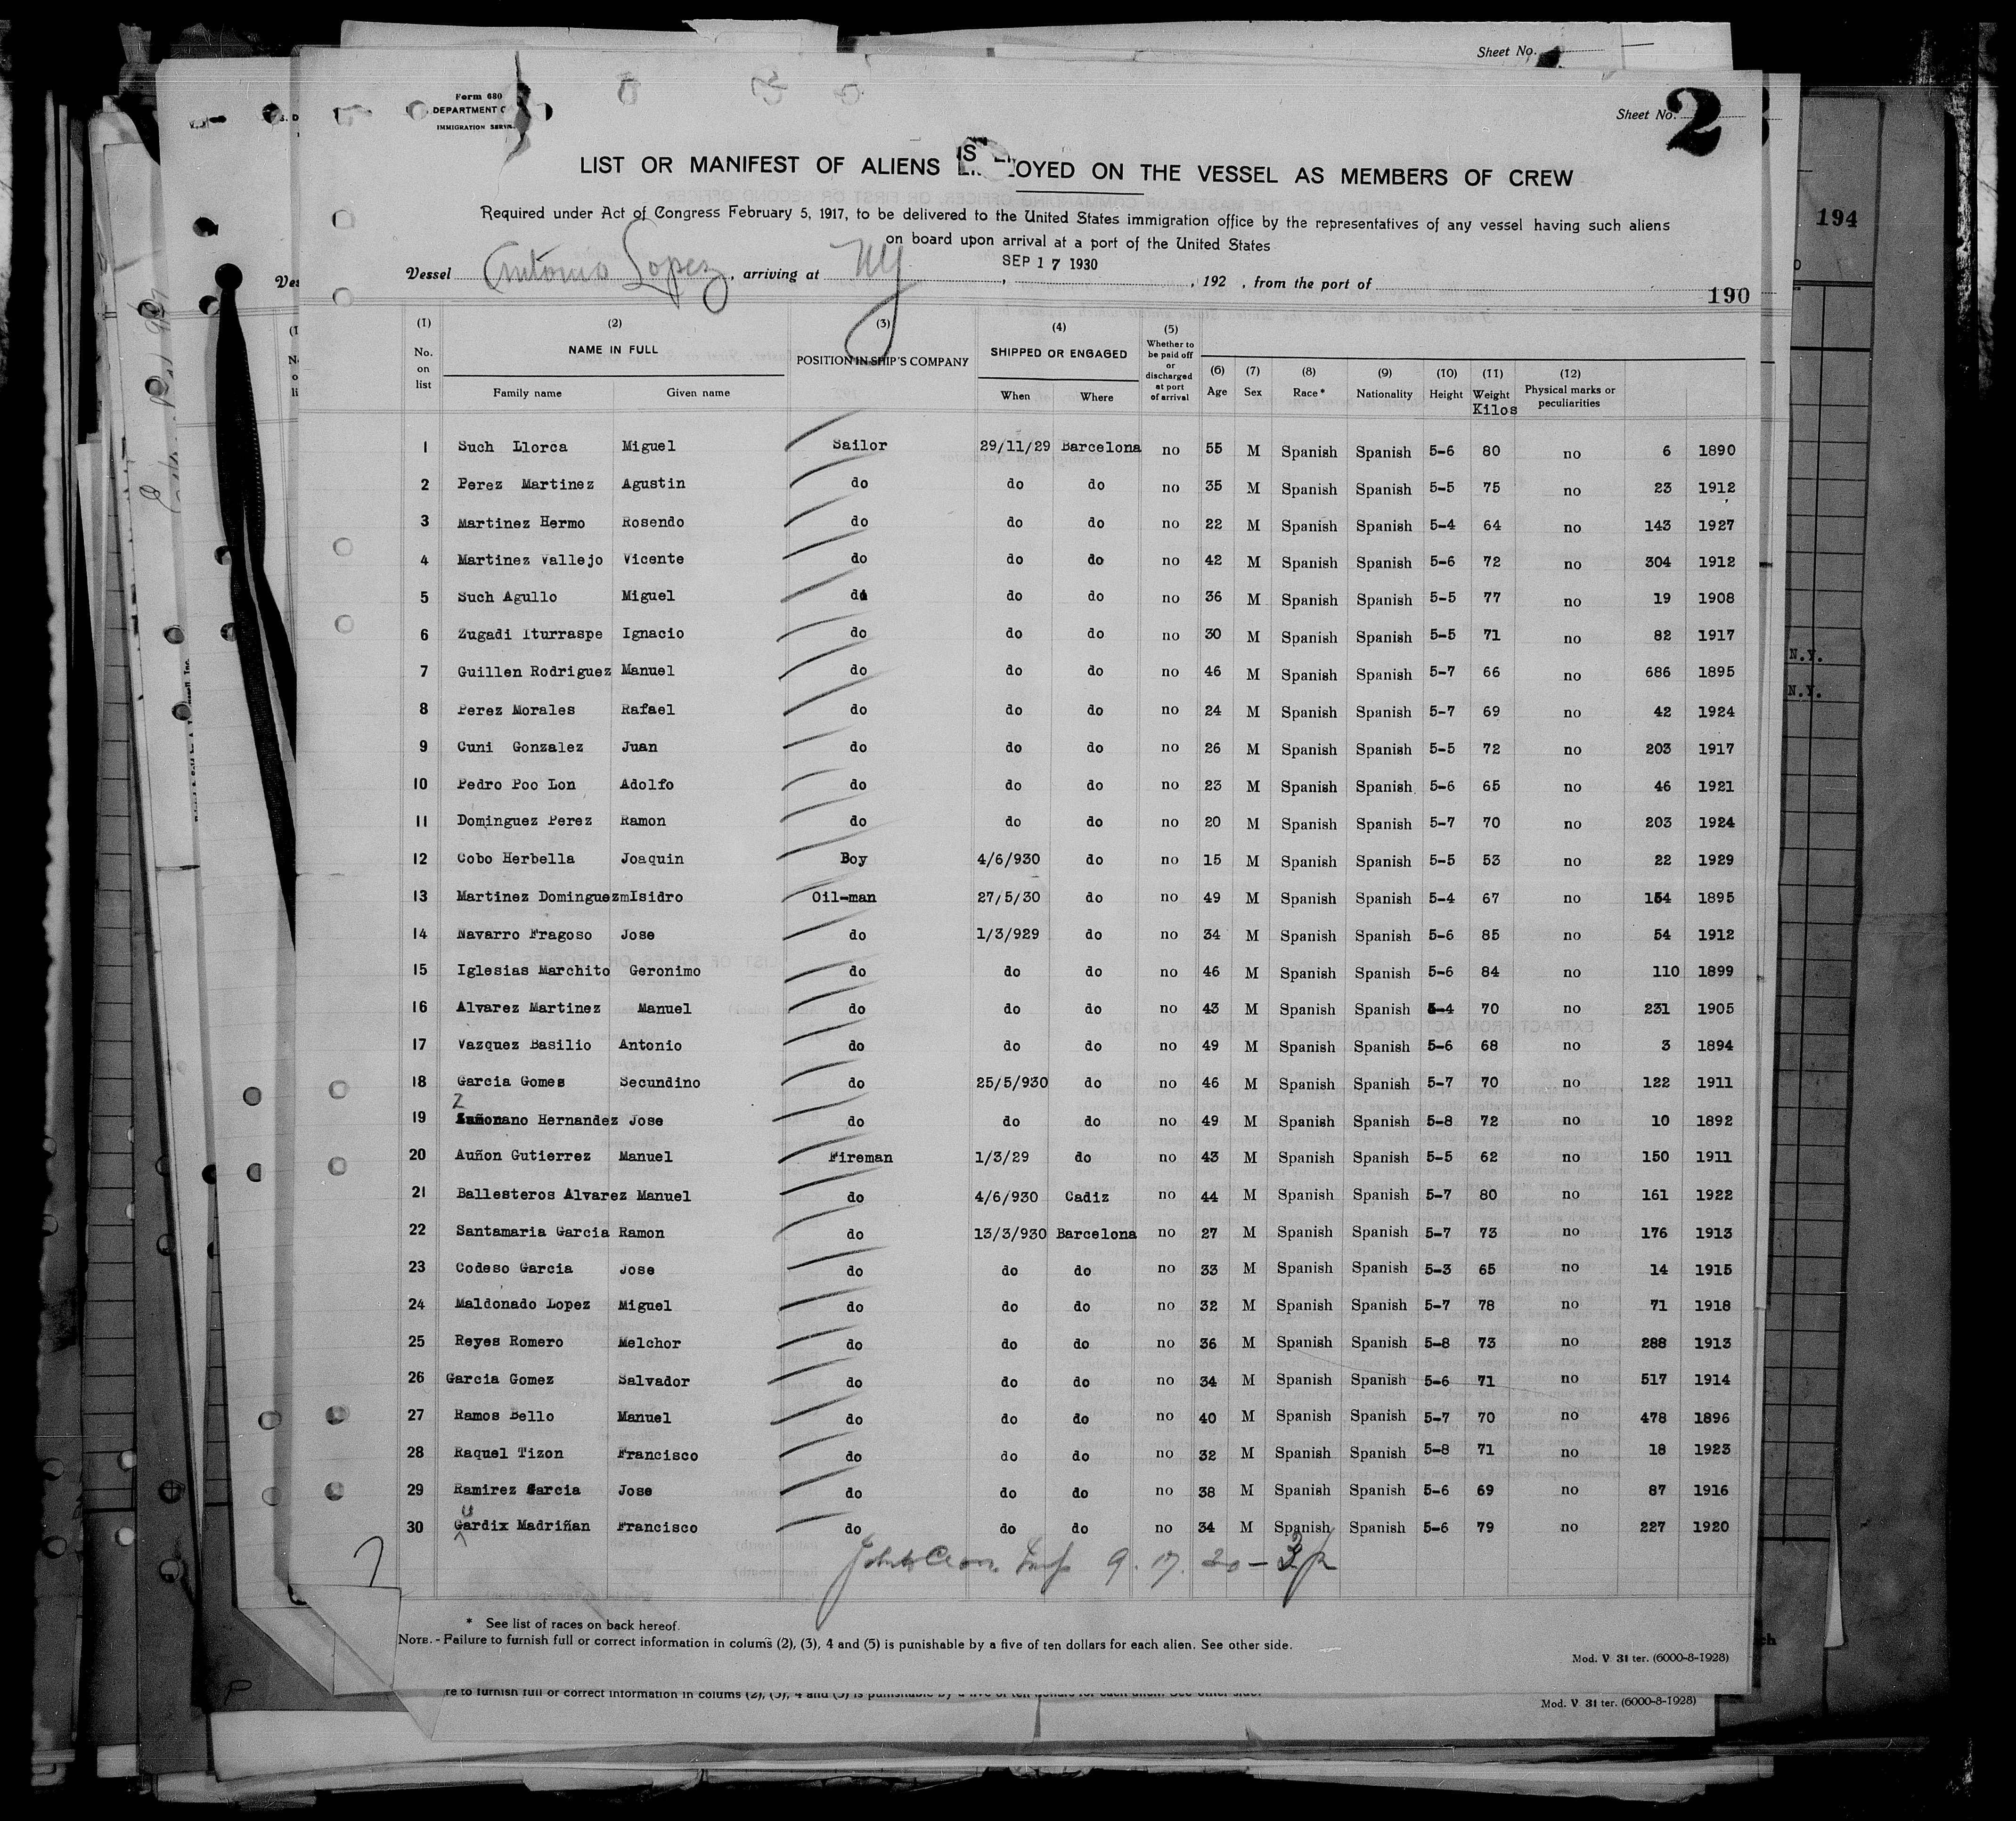 Sheet No.
Form 680
DEPARTMENT
IMMIGRATION
Sheet No. 2
LIST OR MANIFEST OF ALIENS EMPLOYED ON THE VESSEL AS MEMBERS OF CREW
Required under Act of Congress February 5, 1917, to be delivered to the United States immigration office by the representatives of any vessel having such aliens
on board upon arrival at a port of the United States
Vessel Antonio Lopez, arriving at NY, SEP 17 1930, 192 , from the port of
190
194
(1) (2) (3) (4) (5)
No. on list NAME IN FULL POSITION IN SHIP'S COMPANY SHIPPED OR ENGAGED Whether to be paid off or discharged at port of arrival (6) Age (7) Sex (8) Race* (9) Nationality (10) Height (11) Weight Kilos (12) Physical marks or peculiarities
Family name Given name When Where
1 Such Llorca Miguel Sailor 29/11/29 Barcelona no 55 M Spanish Spanish 5-6 80 no 6 1890
2 Perez Martinez Agustin do do do no 35 M Spanish Spanish 5-5 75 no 23 1912
3 Martinez Hermo Rosendo do do do no 22 M Spanish Spanish 5-4 64 no 143 1927
4 Martinez Vallejo Vicente do do do no 42 M Spanish Spanish 5-6 72 no 304 1912
5 Such Agullo Miguel do do do no 36 M Spanish Spanish 5-5 77 no 19 1908
6 Zugadi Iturraspe Ignacio do do do no 30 M Spanish Spanish 5-5 71 no 82 1917
7 Guillen Rodriguez Manuel do do do no 46 M Spanish Spanish 5-7 66 no 686 1895
8 Perez Morales Rafael do do do no 24 M Spanish Spanish 5-7 69 no 42 1924
9 Cuni Gonzalez Juan do do do no 26 M Spanish Spanish 5-5 72 no 203 1917
10 Pedro Poo Lon Adolfo do do do no 23 M Spanish Spanish 5-6 65 no 46 1921
11 Dominguez Perez Ramon do do do no 20 M Spanish Spanish 5-7 70 no 203 1924
12 Cobo Herbella Joaquin Boy 4/6/930 do no 15 M Spanish Spanish 5-5 53 no 22 1929
13 Martinez DominguezmIsidro Oil-man 27/5/30 do no 49 M Spanish Spanish 5-4 67 no 154 1895
14 Navarro Fragoso Jose do 1/3/929 do no 34 M Spanish Spanish 5-6 85 no 54 1912
15 Iglesias Marchito Geronimo do do do no 46 M Spanish Spanish 5-6 84 no 110 1899
16 Alvarez Martinez Manuel do do do no 43 M Spanish Spanish 5-4 70 no 231 1905
17 Vazquez Basilio Antonio do do do no 49 M Spanish Spanish 5-6 68 no 3 1894
18 Garcia Gomes Secundino do 25/5/930 do no 46 M Spanish Spanish 5-7 70 no 122 1911
19 Hernandez Jose do do do no 49 M Spanish Spanish 5-8 72 no 10 1892
20 Auñon Gutierrez Manuel Fireman 1/3/29 do no 43 M Spanish Spanish 5-5 62 no 150 1911
21 Ballesteros Alvarez Manuel do 4/6/930 Cadiz no 44 M Spanish Spanish 5-7 80 no 161 1922
22 Santamaria Garcia Ramon do 13/3/930 Barcelona no 27 M Spanish Spanish 5-7 73 no 176 1913
23 Codeso Garcia Jose do do do no 33 M Spanish Spanish 5-3 65 no 14 1915
24 Maldonado Lopez Miguel do do do no 32 M Spanish Spanish 5-7 78 no 71 1918
25 Reyes Romero Melchor do do do no 36 M Spanish Spanish 5-8 73 no 288 1913
26 Garcia Gomez Salvador do do do no 34 M Spanish Spanish 5-6 71 no 517 1914
27 Ramos Bello Manuel do do do no 40 M Spanish Spanish 5-7 70 no 478 1896
28 Raquel Tizon Francisco do do do no 32 M Spanish Spanish 5-8 71 no 18 1923
29 Ramirez Garcia Jose do do do no 38 M Spanish Spanish 5-6 69 no 87 1916
30 Gaurdix Madriñan Francisco do do do no 34 M Spanish Spanish 5-6 79 no 227 1920
* See list of races on back hereof.
NOTE. - Failure to furnish full or correct information in colums (2), (3), 4 and (5) is punishable by a five of ten dollars for each alien. See other side.
Mod. V 31 ter. (6000-8-1928)
re to furnish full or correct information in colums (2), (3), 4 and (5) is punishable by a five of ten dollars for each alien. See other side.
Mod. V 31 ter. (6000-8-1928)
N.Y.
N.Y.